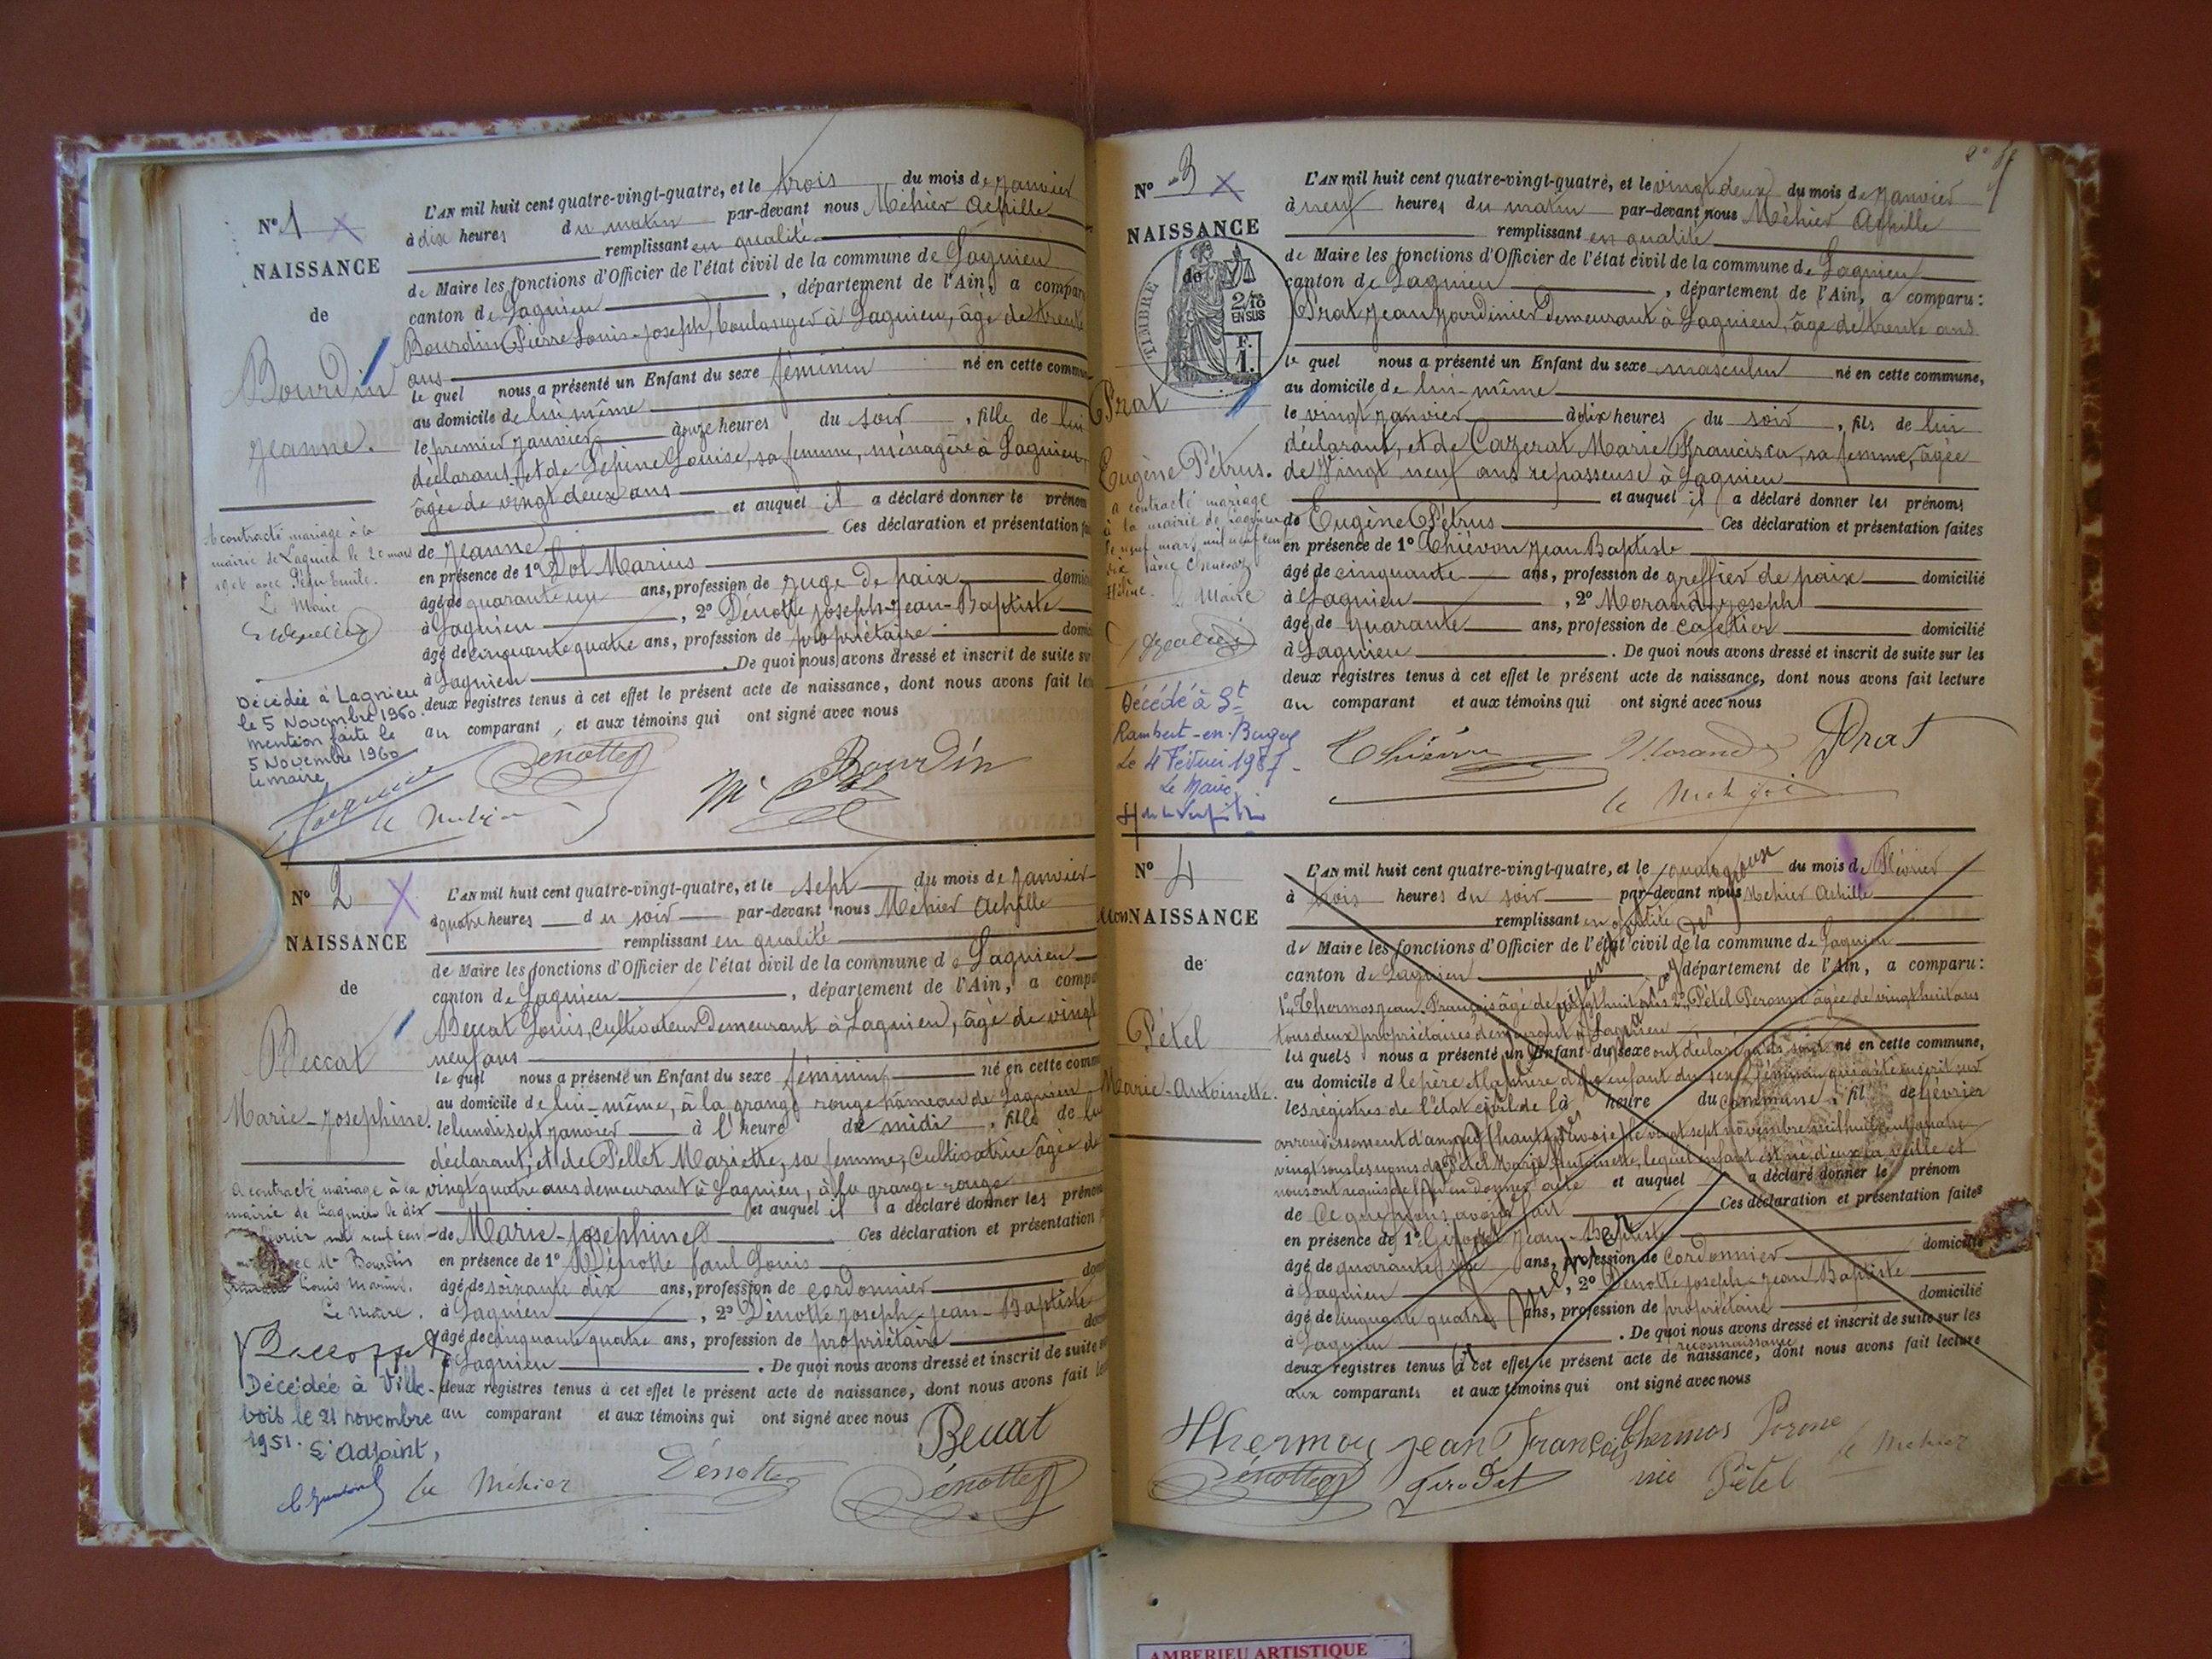 N° 1
NAISSANCE
de
Bourdin
Jeanne.
A contracté mariage à la
mairie de Lagnieu le 20 mars
avec
Le Maire
Décédée à Lagnieu
le 5 Novembre 1960.
mention faite le
5 Novembre 1960
le maire
L'AN mil huit cent quatre-vingt-quatre, et le trois du mois de Janvier
à dix heures du matin par-devant nous Méhier Achille
remplissant en qualité
de Maire les fonctions d'Officier de l'état civil de la commune de Lagnieu
canton de Lagnieu, département de l'Ain, a compar
Bourdin Pierre Louis-Joseph, boulanger à Lagnieu, âgé de trente
ans
le quel nous a présenté un Enfant du sexe féminin né en cette commu
au domicile de lui même
le premier Janvier à onze heures du soir, fille de lui
déclarant, et de Louise, sa femme, ménagère à Lagnieu,
âgée de vingt deux ans
et auquel il a déclaré donner le prénom
de Jeanne Ces déclaration et présentation fa
en présence de 1° Sol Marius
âgé de quarante un ans, profession de Juge de paix domici
à Lagnieu, 2° Dénotte Joseph-Jean-Baptiste
âgé de cinquante quatre ans, profession de propriétaire domi
à Lagnieu. De quoi nous avons dressé et inscrit de suite su
deux registres tenus à cet effet le présent acte de naissance, dont nous avons fait le
au comparant, et aux témoins qui ont signé avec nous
Dénotte
Bourdin
Méhier
N° 2
NAISSANCE
de
Beccat
Marie-Josephine.
A contracté mariage à la
mairie de Lagnieu le dix
février mil neuf cent
avec Mr Bourdin
Louis Marius.
Le maire.
Décédée à Ville-
bois le 21 novembre
1951. L'Adjoint,
L'AN mil huit cent quatre-vingt-quatre, et le sept du mois de Janvier
à quatre heures du soir par-devant nous Méhier Achille
remplissant en qualité
de Maire les fonctions d'Officier de l'état civil de la commune d e Lagnieu
canton de Lagnieu, département de l'Ain, a compa
Beccat Louis, Cultivateur Demeurant à Lagnieu, âgé de vingt
neuf ans
le quel nous a présenté un Enfant du sexe féminin né en cette comm
au domicile de lui-même, à la grange rouge hameau de Lagnieu
le lundi sept Janvier à l' heure du midi, fille de lu
déclarant, et de Pellet Mariette, sa femme, Cultivatrice âgée de
vingt quatre ans demeurant à Lagnieu, à la grange rouge
et auquel il a déclaré donner les prénoms
de Marie-Josephine Ces déclaration et présentation
en présence de 1° Dénotte Paul Louis
âgé de soixante dix ans, profession de cordonnier dom
à Lagnieu, 2° Dénotte Joseph-Jean-Baptiste
âgé de cinquante quatre ans, profession de propriétaire dom
à Lagnieu. De quoi nous avons dressé et inscrit de suite s
deux registres tenus à cet effet le présent acte de naissance, dont nous avons fait le
au comparant et aux témoins qui ont signé avec nous
Beccat
Méhier Dénotte Dénotte
N° 3
NAISSANCE
de
TIMBRE
2/10
EN SUS
F.
1.
Prat
Eugène Pétrus.
a contracté mariage
à la mairie de Lagnieu
le neuf mars mil neuf cent
dix avec
Hélène. Le Maire
Décédé à St
Rambert-en-Bugey
Le 4 Février 1987
Le Maire
L'AN mil huit cent quatre-vingt-quatre, et le vingt deux du mois de Janvier
à neuf heures du matin par-devant nous Méhier Achille
remplissant en qualité
de Maire les fonctions d'Officier de l'état civil de la commune de Lagnieu
canton de Lagnieu, département de l'Ain, a comparu:
Prat Jean Jardinier Demeurant à Lagnieu, âgé de trente ans
le quel nous a présenté un Enfant du sexe masculin né en cette commune,
au domicile de lui-même
le vingt Janvier à dix heures du soir, fils de lui
déclarant, et de Cazerat Marie Francisca, sa femme, âgée
de Vingt neuf ans repasseuse à Lagnieu
et auquel il a déclaré donner les prénoms
de Eugène Pétrus Ces déclaration et présentation faites
en présence de 1° Thiévon Jean Baptiste
âgé de cinquante ans, profession de greffier de paix domicilié
à Lagnieu, 2° Morand Joseph
âgé de quarante ans, profession de cafetier domicilié
à Lagnieu. De quoi nous avons dressé et inscrit de suite sur les
deux registres tenus à cet effet le présent acte de naissance, dont nous avons fait lecture
au comparant et aux témoins qui ont signé avec nous
Morand Prat
N° 4
NAISSANCE
de
Pétel
Marie-Antoinette.
L'AN mil huit cent quatre-vingt-quatre, et le quatorze du mois de Février
à trois heures du soir par-devant nous Méhier Achille
remplissant en qualité
de Maire les fonctions d'Officier de l'état civil de la commune de Lagnieu
canton de Lagnieu, département de l'Ain, a comparu:
1° Thermos Jean-François âgé de vingt huit ans 2° Pétel Peronne âgée de vingt huit ans
tous deux propriétaires demeurant à Lagnieu
les quels nous a présenté un Enfant du sexe ont déclaré qu'ils sont né en cette commune,
au domicile d le père et la mère d'un enfant du sexe féminin qui a été inscrit sur
les régistres de l'état civil de la à heure du commune, fil de
arrondissement d'annecy (haute Savoie) le vingt sept novembre mil huit cent quatre
vingt sous les noms de Pétel Marie Antoinette, lequel enfant est né d'eux la veille et
nous ont requis de leur en donner acte et auquel a déclaré donner le prénom
de Ce que nous avons fait Ces déclaration et présentation faites
en présence de 1° Girodet Jean-Baptiste
âgé de quarante ans, profession de Cordonnier domicilié
à Lagnieu, 2° Dénotte Joseph-Jean Baptiste
âgé de cinquante quatre ans, profession de propriétaire domicilié
à Lagnieu. De quoi nous avons dressé et inscrit de suite sur les
reconnaissance
deux registres tenus à cet effet le présent acte de naissance, dont nous avons fait lecture
aux comparants et aux témoins qui ont signé avec nous
Thermos Jean François Thermos Porone
Dénotte Girodet née Pétel Méhier
AMBERIEU ARTISTIQUE